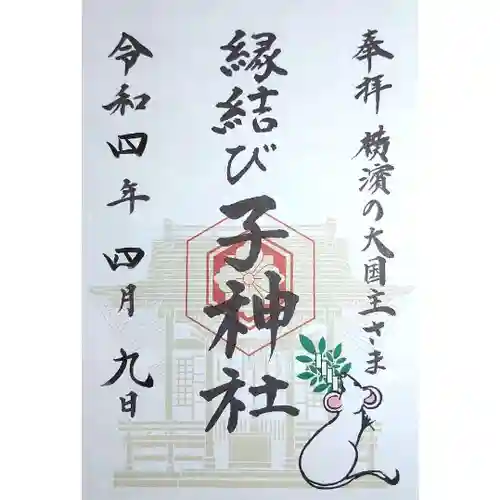 奉拝 横濱の大国主さま
縁結び子神社
令和四年四月九日